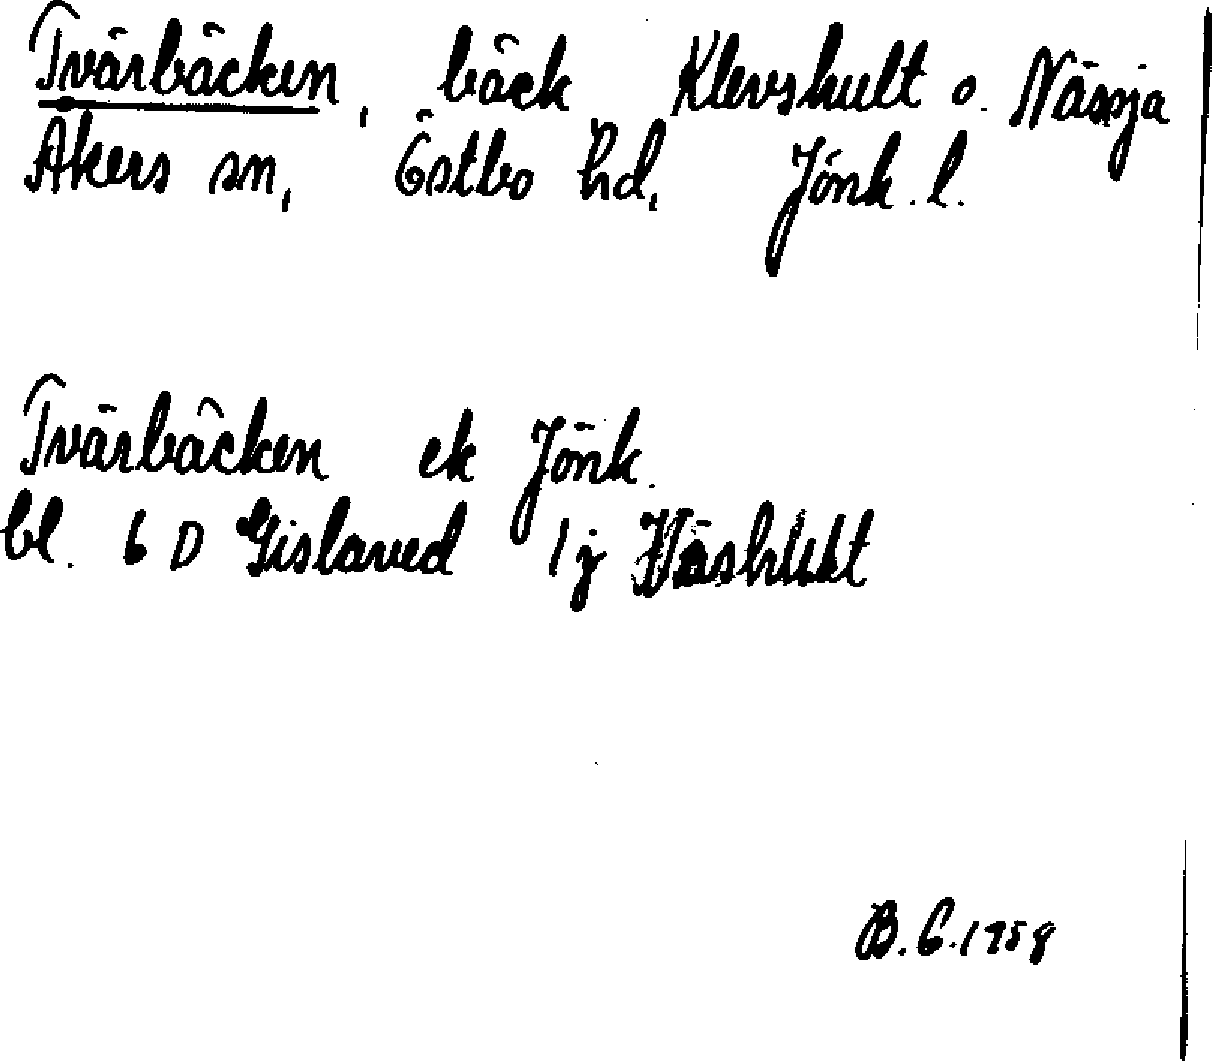 Tvärbäcken, bäck Klevshult o. Nässja
Åkers sn, Östbo hd, Jönk. l.
Tvärbäcken ek Jönk.
bl. 6 D Gislaved 1j
B. G. 1958